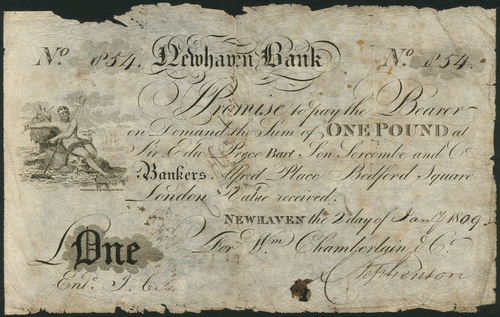 No. 854. Newhaven Bank No. 854.
I Promise to pay the Bearer
on Demand the Sum of ONE POUND at
Sir Edwd. Pryce Bart. Son and Co.
Bankers. Alfred Place Bedford Square
London Value received.
NEWHAVEN the 2 day of Jany. 1809
For Wm. Chamberlain & Co.
£One Stephenson
Entd.